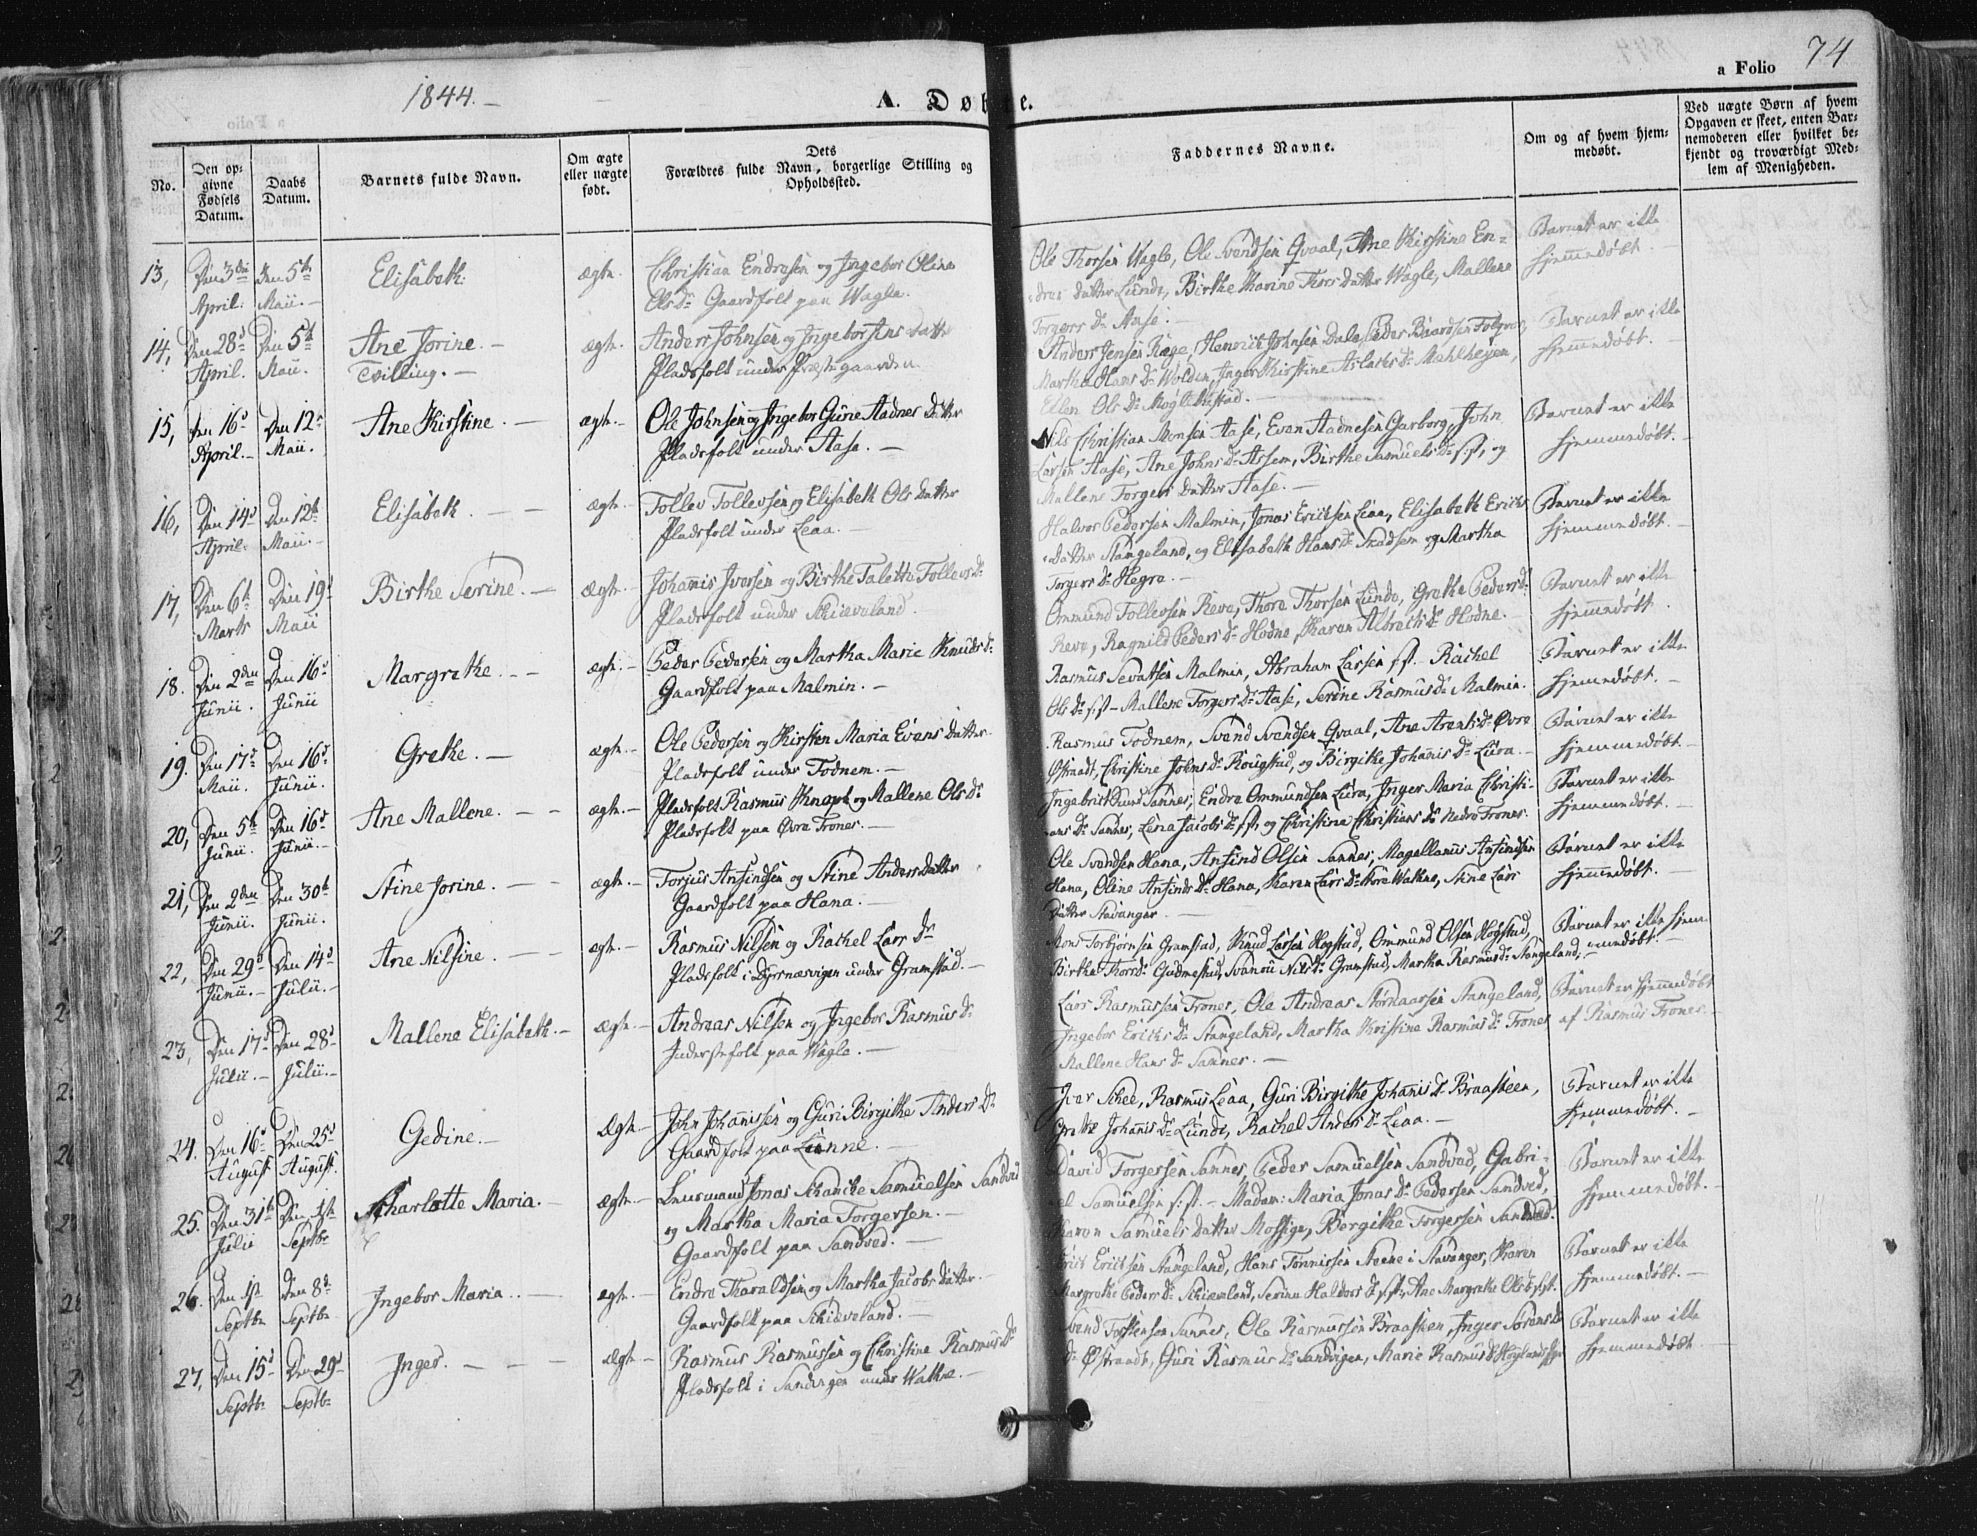 1844.
A. Døbte.
a Folio 74
No.
Den op-
givne
Fødsels
Datum.
Daabs
Datum.
Barnets fulde Navn.
Om ægte
eller uægte
født.
Dets
Forældres fulde Navn, borgerlige Stilling og
Opholdssted.
Faddernes Navne.
Om og af hvem hjem-
medøbt.
Ved uægte Børn af hvem
Opgaven er skeet, enten Bar-
nemoderen eller hvilket be-
kjendt og troværdigt Med-
lem af Menigheden.
13, Den 3die April. Den 5te Maii. Elisabeth. ægte.
Christian Endresen og Ingebor Oline
Ols Dr Gaardfolk paa Wagle.
Ole Thorsen Wagle, Ole Svendsen Qvaal, Ane Kirstine En-
dres datter Lunde, Birthe Karine Thors datter Wagle, Mallene
Torgers Dr Aase.
Barnet er ikke
hjemmedøbt.
14, Den 28d April. Den 5te Maii. Ane Jorine. Tvilling. ægte.
Anders Johnsen og Ingebor Jens datter
Pladsfolk under Præstegaarden.
Anders Jensen Rage, Henrich Johnsen Dale, Peder Baardsen
Martha Hans Dr Wolden, Inger Kirstine Aslaks Dr
Ellen Ols Dr
Barnet er ikke
hjemmedøbt.
15, Den 16d April. Den 12te Maii. Ane Kirstine. ægte.
Ole Johnsen og Ingebor Gurie Aadnes Datter
Pladsfolk under Aase.
Nils Christian Monsen Aase, Even Aadnesen Garborg, John
Larsen Aase, Ane Johns Dr Assem, Birthe Samuels Dr s:st, og
Mallene Torgers Datter Aase.
Barnet er ikke
hjemmedøbt.
16, Den 14d April. Den 12te Maii. Elisabeth. ægte.
Tollev Tollevsen og Elisabeth Ols Datter
Pladsfolk under Leaa.
Halvor Pedersen Malmin, Jonas Ericksen Leaa, Elisabeth Ericks
datter Stangeland, og Elisabeth Hans Dr Skadsem og Martha
Torgers Dr Hegre.
Barnet er ikke
hjemmedøbt.
17, Den 6te Marts Den 19d Maii Birthe Serine. ægte.
Johannis Iversen og Birthe Taletta Tollevs Dr
Pladsfolk under Schieveland.
Ommund Tollevsen Reve, Thore Thorsen Lunde, Grethe Peders Dr
Reve, Ragnild Peders Dr Hodne, Karen Albreths Dr Hodne.
Barnet er ikke
hjemmedøbt.
18. Den 2den Junii. Den 16d Junii Margrethe. ægte.
Peder Pedersen og Martha Marie Knuds Dr
Gaardfolk paa Malmin.
Rasmus Sevatsen Malmin, Abraham Larsen s:st. Rachel
Ols Dr s:st - Mallene Torgers Dr Aase, Serine Rasmus Dr Malmin.
Barnet er ikke
hjemmedøbt.
19. Den 17d Maii. Den 16d Junii. Grethe. ægte.
Ole Pedersen og Kirsten Maria Evens Datter
Pladsfolk under Todnem.
Rasmus Todnem, Svend Svendsen Qvaal, Ane Arents Dr Øvre
Østraadt, Christine Johns Dr Rougstad, og Birgithe Johannis Dr Lura.
Barnet er ikke
hjemmedøbt.
20, Den 5te Junii. Den 16d Junii. Ane Mallene. ægte.
Pladsfolk Rasmus Knapt og Mallene Ols Dr
Pladsfolk paa Øvre Frones.
Ingebrict Lund Sannes, Endre Ommundsen Lura, Inger Maria Christi-
ans Dr Sannes, Lena Jacobs Dr s:st, og Christina Christians Dr Nedre Frones.
Barnet er ikke
hjemmedøbt.
21, Den 2den Junii. Den 30te Junii. Stine Jorine. ægte.
Torjus Ansindsen og Stine Anders Datter
Gaardfolk paa Hana.
Ole Svendsen Hana, Ansind Olsen Sannes, Magellanus Ansindsen
Hana, Oline Ansinds Dr Hana, Karen Lars Dr Store Watne, Stine Lars
Datter Stavanger.
Barnet er ikke
hjemmedøbt.
22, Den 29d Junii. Den 14d Julii. Ane Nilsine. ægte.
Rasmus Nilsen og Rachel Lars Dr
Pladsfolk i Dyrsnæsvigen under Gramstad.
Mons Torbjørnsen Gramstad, Knud Larsen Hogstad, Ommund Olsen Hogstad,
Birthe Thors Dr Gudmestad, Svanau Nils Dr Gramstad, Martha Rasmus Dr Stangeland,
Barnet er ikke hjem-
medøbt.
23, Den 17d Julii. Den 28d Julii. Mallene Elisabeth. ægte.
Andreas Nilsen og Ingebor Rasmus Dr
Inderstefolk paa Wagle.
Lars Rasmussen Frones, Ole Andreas Størnaarsen Stangeland,
Ingebor Ericks Dr Stangeland, Martha Kristine Rasmus Dr Frones
Mallene Hans Dr Sannes.
Barnet er hjemmedøbt
af Rasmus Frones.
24. Den 16d August Den 25d August. Gedine. Ægte.
John Johannissen og Guri Birgithe Anders Dr
Gaardfolk paa Lienne.
Iver Schee, Rasmus Leaa, Guri Birgithe Johannis Dr Braasteen,
Grethe Johannis Dr Lunde, Rachel Anders Dr Leaa.
Barnet er ikke
hjemmedøbt.
25. Den 31te Julii Den 1ste Septbr Charlotte Maria. ægte.
Lensmand Jonas Schancke Samuelsen Sandved
og Martha Maria Torgersen.
Gaardfolk paa Sandved.
David Torgersen Sannes, Peder Samuelsen Sandved, Gabri-
el Samuelsen s:st. - Madam: Maria Jonas Dr Pedersen Sandved,
Karen Samuels Datter Mossige, Bergithe Torgersen Sandved.
Barnet er ikke
hjemmedøbt.
26. Den 1ste Septbr Den 8de Septbr Ingebor Maria. ægte.
Endre Tharaldsen og Martha Jacobs datter
Gaardfolk paa Schieveland.
Erick Ericksen Stangeland, Hans Tønnissen Steene i Stavanger, Karen
Margrethe Peders Dr Schieveland, Serina Haldors Dr s:st, Ane Margrethe Ols Dr s:st.
Barnet er ikke
hjemmedøbt.
27, Den 15d Septbr Den 29d Septbr Inger. ægte
Rasmus Rasmussen og Christine Rasmus Dr
Pladsfolk i Sandvigen under Wathne.
Svend Torstensen Sannes, Ole Rasmussen Braasteen, Inger Sørens
Dr Østraadt, Guri Rasmus Dr Sandvigen, Marie Rasmus Dr
Barnet er ikke
hjemmedøbt